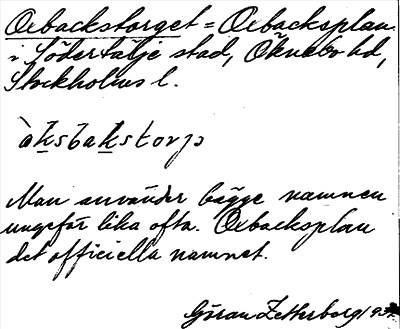 Oxbackstorget = Oxbacksplan
i Södertälje stad, Öknebo hd,
Stockholms l.
`oksbakstorjə
Man använder bägge namnen
ungefär lika ofta. Oxbacksplan
det officiella namnet.
Göran Zetterborg